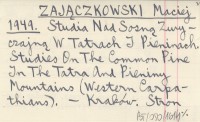 ZAJĄCZKOWSKI Maciej
1949. Studia Nad Sosną Zwy
czajną W Tatrach I Pieninach.
Studies On The Common Pine
In The Tatra And Pieniny
Mountains (Western Carpa-
thians). – Kraków. Stron